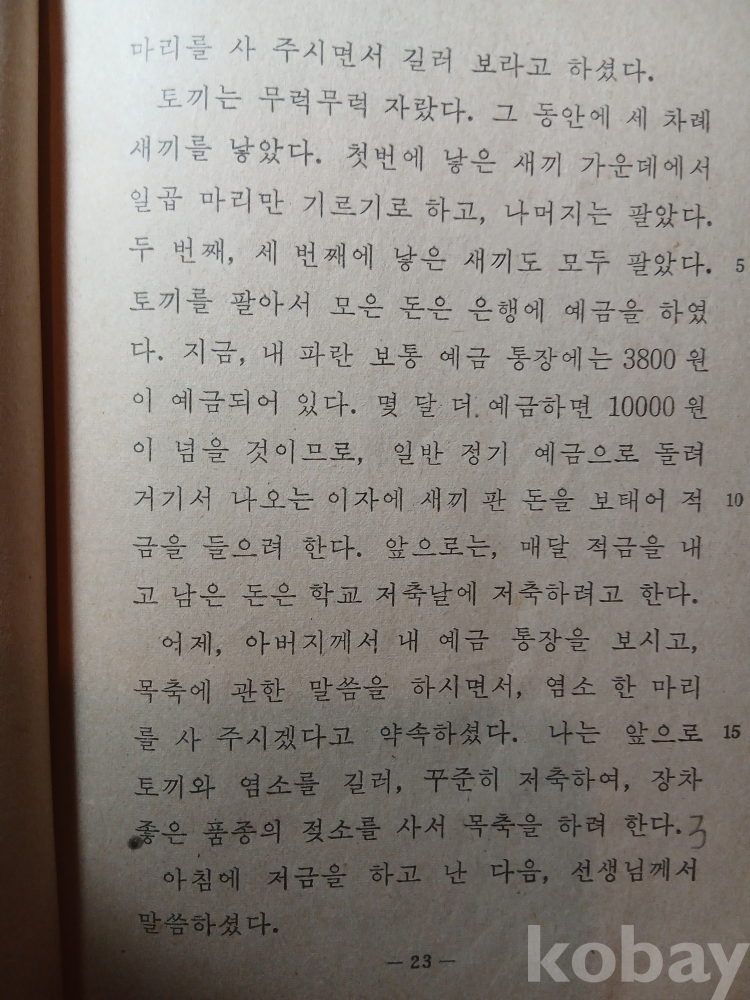 마리를 사 주시면서 길러 보라고 하셨다.
토끼는 무럭무럭 자랐다. 그 동안에 세 차례
새끼를 낳았다. 첫번에 낳은 새끼 가운데에서
일곱 마리만 기르기로 하고, 나머지는 팔았다.
두 번째, 세 번째에 낳은 새끼도 모두 팔았다. 5
토끼를 팔아서 모은 돈은 은행에 예금을 하였
다. 지금, 내 파란 보통 예금 통장에는 3800 원
이 예금되어 있다. 몇 달 더 예금하면 10000 원
이 넘을 것이므로, 일반 정기 예금으로 돌려
거기서 나오는 이자에 새끼 판 돈을 보태어 적 10
금을 들으려 한다. 앞으로는, 매달 적금을 내
고 남은 돈은 학교 저축날에 저축하려고 한다.
어제, 아버지께서 내 예금 통장을 보시고,
목축에 관한 말씀을 하시면서, 염소 한 마리
를 사 주시겠다고 약속하셨다. 나는 앞으로 15
토끼와 염소를 길러, 꾸준히 저축하여, 장차
좋은 품종의 젖소를 사서 목축을 하려 한다. 3
아침에 저금을 하고 난 다음, 선생님께서
말씀하셨다.
— 23 —
kobay